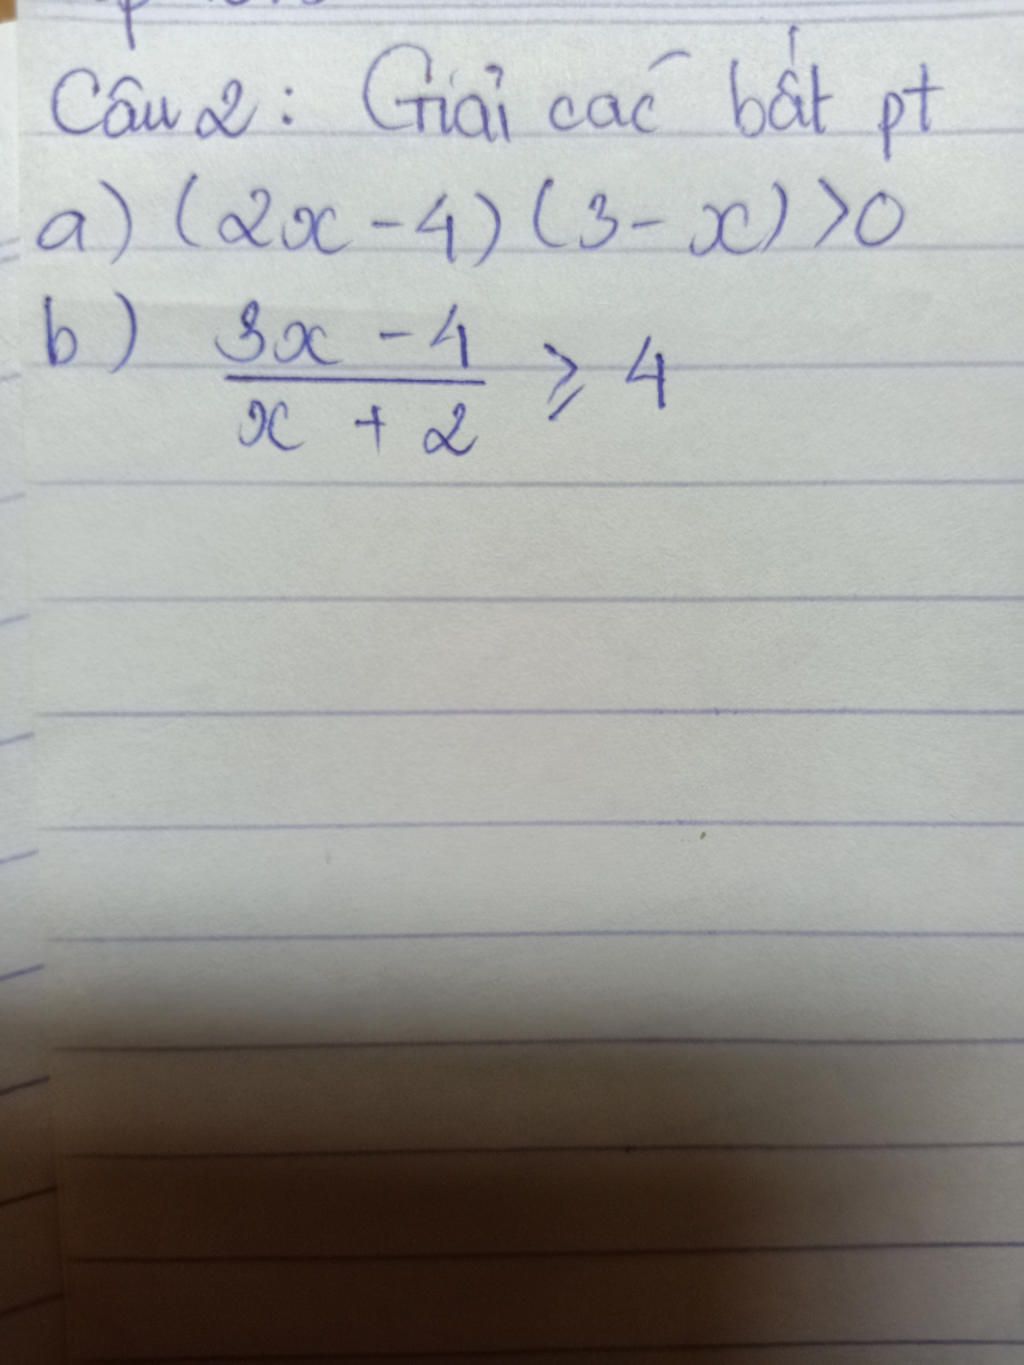 Câu 2: Giải các bất pt
a) (2x - 4) (3 - x) > 0
b) \frac{3x - 4}{x + 2} ≥ 4